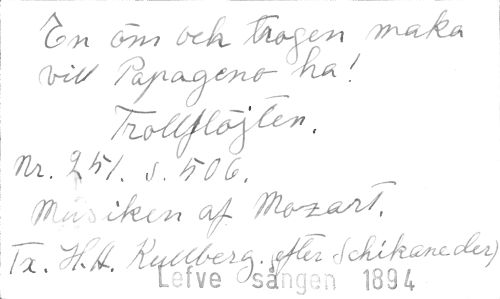 En öm och trogen maka
vill Papageno ha!
Trollflöjten.
Nr. 251. s. 506.
Musiken af Mozart.
Tx. H.A. Kullberg. efter Schikaneder)
Lefve sången 1894